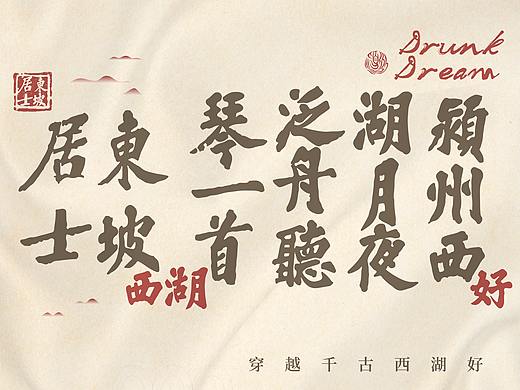 Drunk
Dream
潁州西
湖月夜
泛舟聽
琴一首
東坡
居士
好
西湖
東坡
居士
穿越千古西湖好